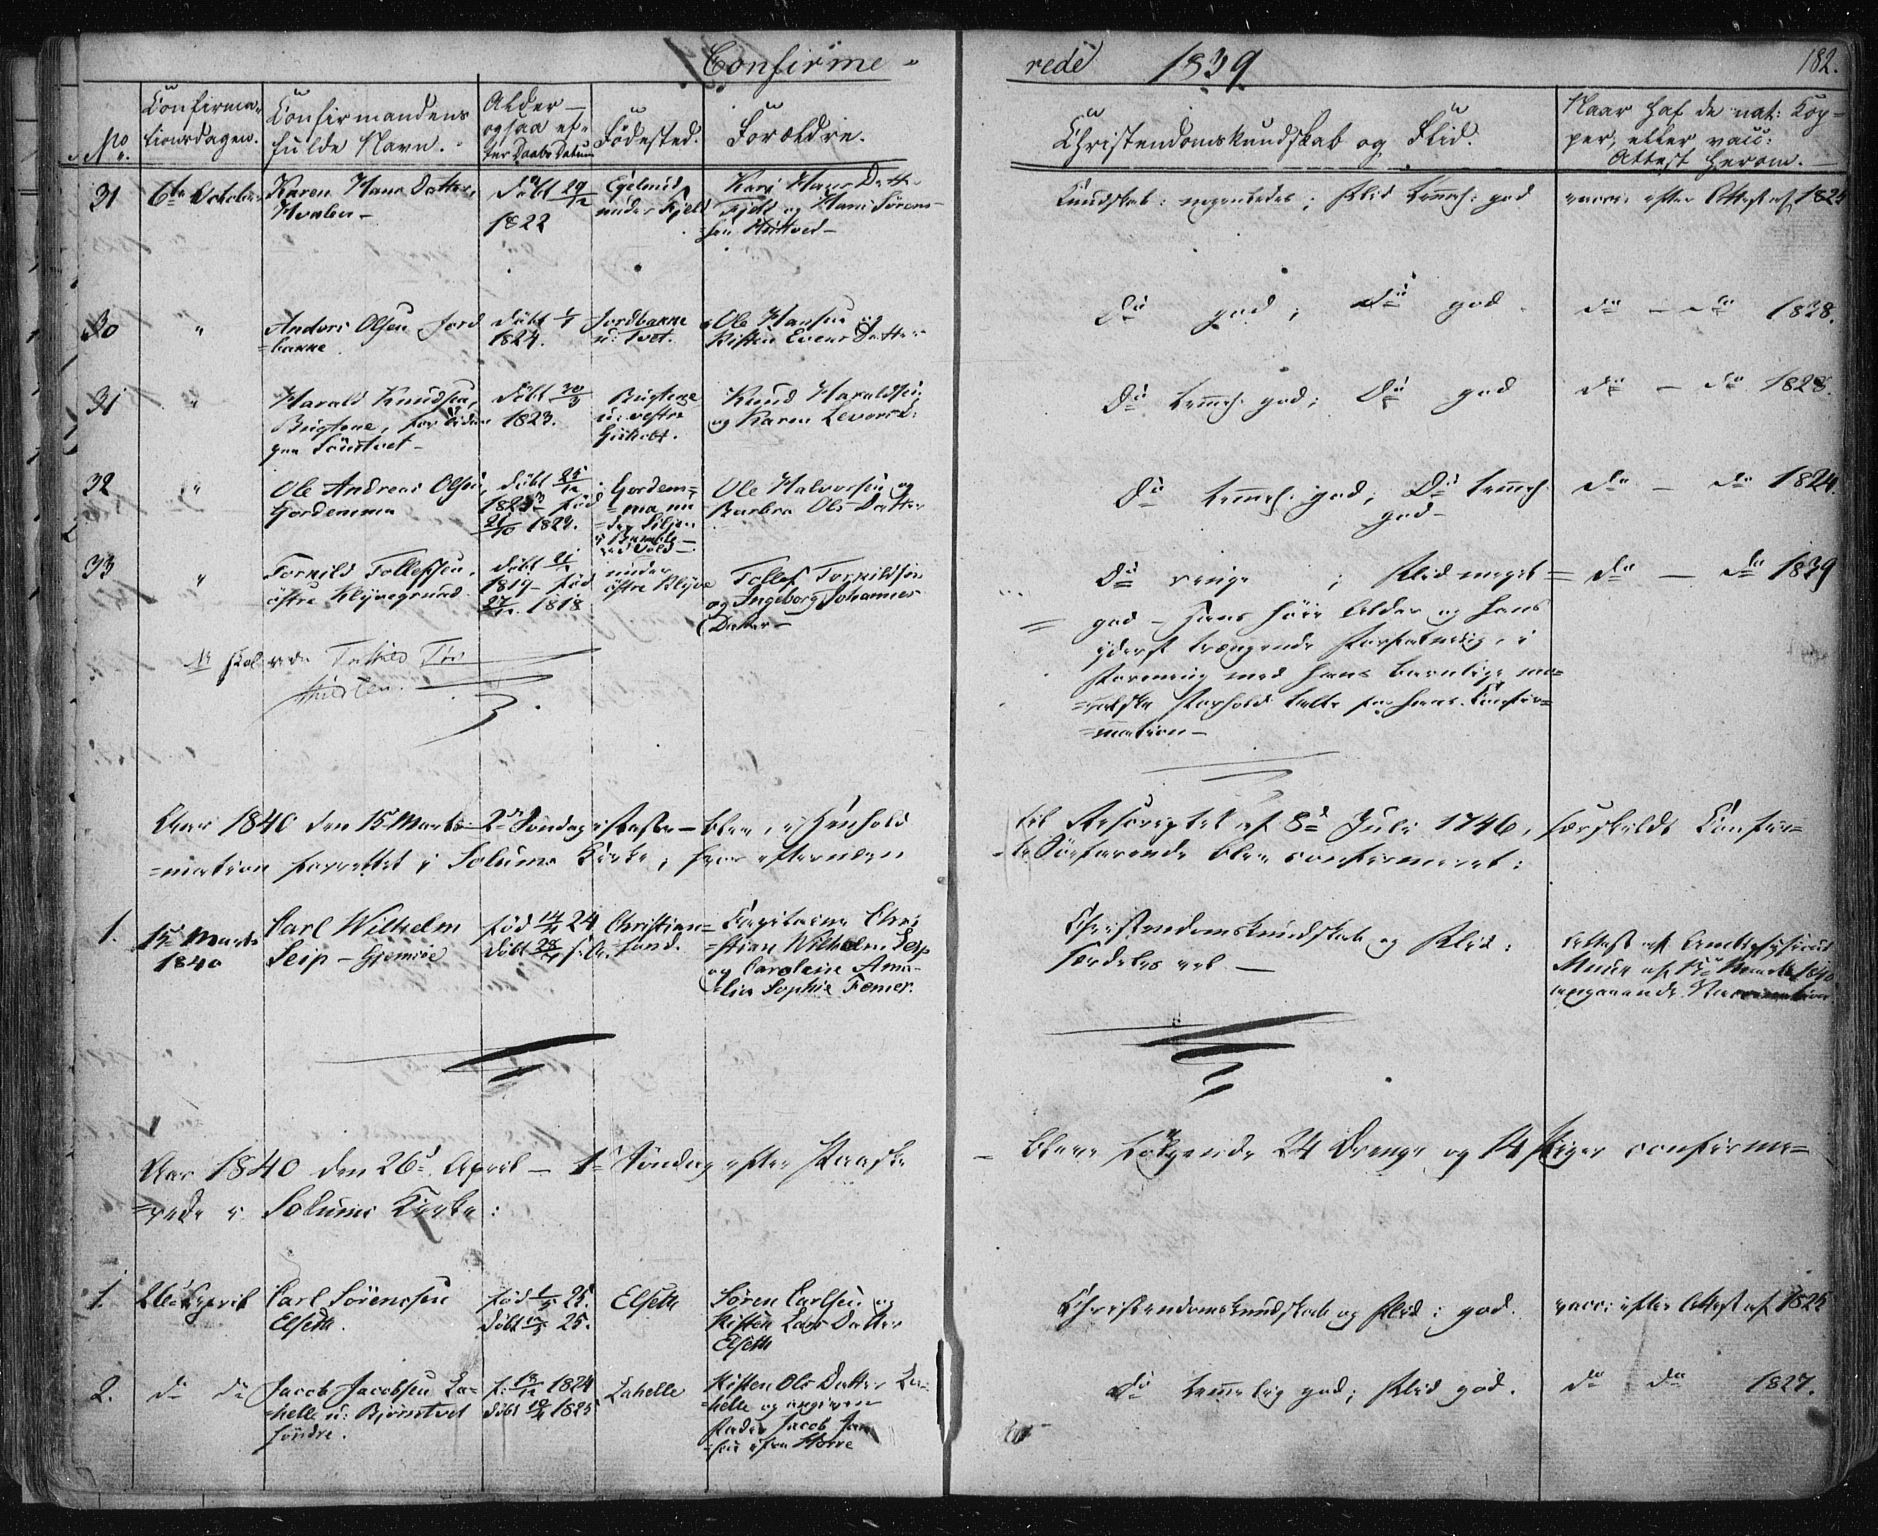 Confirme-
rede 1839
182.
No
Confirma-
tionsdagen.
Confirmandens
fulde Navn.
Alder
ogsaa ef-
ter Daabs Datum
Fødested.
Forældre.
Christendomskundskab og Flid.
Naar haf de nat: Kop-
per, eller vacc:
Attest herom.
31 6te October Karen Hans Datter,
døbt 29/12
1822
under Fjeld
Kari Hans Datter
Fjeld og Hans Søren-
sen
Kundskab: ; Flid temel: god
vacc: efter Attest af 1825
30 " Anders Olsen Jord
=bakke.
døbt 1/1
1824.
Jordbakke
u: Tvet.
Ole Hansen og
Kisten Evens Datter
Do god; Do god.
do — do 1828.
31 " Harald Knudsen,
døbt 30/3
1823.
u: vestre
Knud Haraldsen
og Karen Levors D:
Do temel. god; Do god
do — do 1828.
32 " Ole Andreas Olsen,
Gordemma
døbt 25/12
1823 — fød
21/10 1823.
Gordem-
=ma un-
=der Siljan
Ole Halvorsen og
Barbro Ols Datter
Do temel. god; Do temel.
god—
do — do 1824.
33 " Torkild Tollefsen,
østre Klyvegrund
døbt 21/2
1819 — fød
27/12 1818
under
østre Klyve
Tollef Torkildsen
og Ingeborg Johannes
Datter —
Do ringe ; Flid meget
god — hans høie Alder og hans
yderst trængende Forfatning, i
Forening med hans barnlige mo-
=ralske Forhold talte for hans Confir-
=mation —
do — do 1839
Aar 1840 den 15 Marts — 2den Søndag i Faste — blev, i Henhold
til Rescriptet af 8de Juli 1746, særskildt Confir-
=mation forrettet i Solums Kirke, hvor efternævn
te Søefarende blev confirmeret:
1. 15de Marts
1840
Carl Wilhelm
Seip — Gjemsøe
fød 14/4 24
døbt 28/ s. A.
Christian-
=sand.
Capitaine Chri-
=stian Wilhelm Seip
og Caroline Ama-
=lia Sophie Femer.
Christendomskundskab og Flid:
særdeles vel —
Attest af Amtsphysicus
Munk af 13de Marts 1840
angaaende Vaccination.
Aar 1840 den 26de April — 1ste Søndag efter Paaske
— bleve følgende 24 Drenge og 14 Piger confirme-
=rede i Solums Kirke:
1. 26de April Carl Sørenssen
Elseth.
fød 25.
døbt 25.
Elseth
Søren Carlsen og
Kisten Lars Datter
Elseth
Christendomskundskab og Flid: god.
vacc: efter Attest af 1825
2. do do Jacob Jacobsen La-
=helle u: Bjørntvet
søndre.
f: 13/12 1824
døbt 10/4 1825
Lahelle
Kisten Ols Datter La-
=helle og angiven
Fader Jacob Jan
Do temelig god; Flid god.
do do 1827.